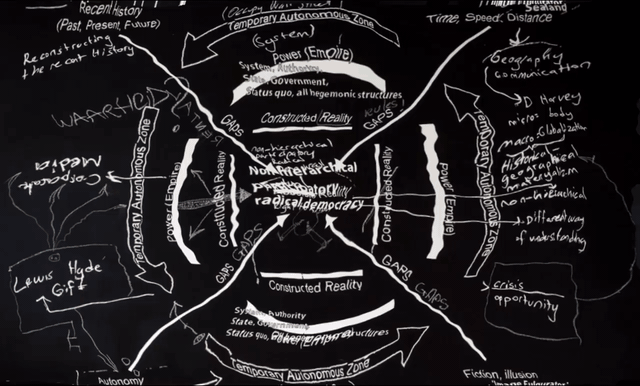 Recent History
(Past, Present, Future)
Reconstructing
the recent History
(Occupy Wall Street
Temporary Autonomous Zone
(System)
Power (Empire)
System, Authority,
State, Government,
Status quo, all hegemonic structures
Constructed Reality
Time, Speed, Distance
Sealand
Geography
Communication
D Harvey
micros body
macro globalization
Historical
geographical
materialism
non-hierarchical
Different way
of understanding
crisis
opportunity
GAPS
GAPS
non-hierarchical
participatory
Non-hierarchical
participatory
radical democracy
Corporate
Media
Temporary Autonomous Zone
Power (Empire)
Constructed Reality
Constructed Reality
Power (Empire)
Temporary Autonomous Zone
Lewis Hyde
Gift
GAPS GAPS
GAPS GAPS
Constructed Reality
System, Authority
State, Government,
Status quo, all hegemonic structures
Power (Empire)
Temporary Autonomous Zone
Autonomy
Fiction, illusion